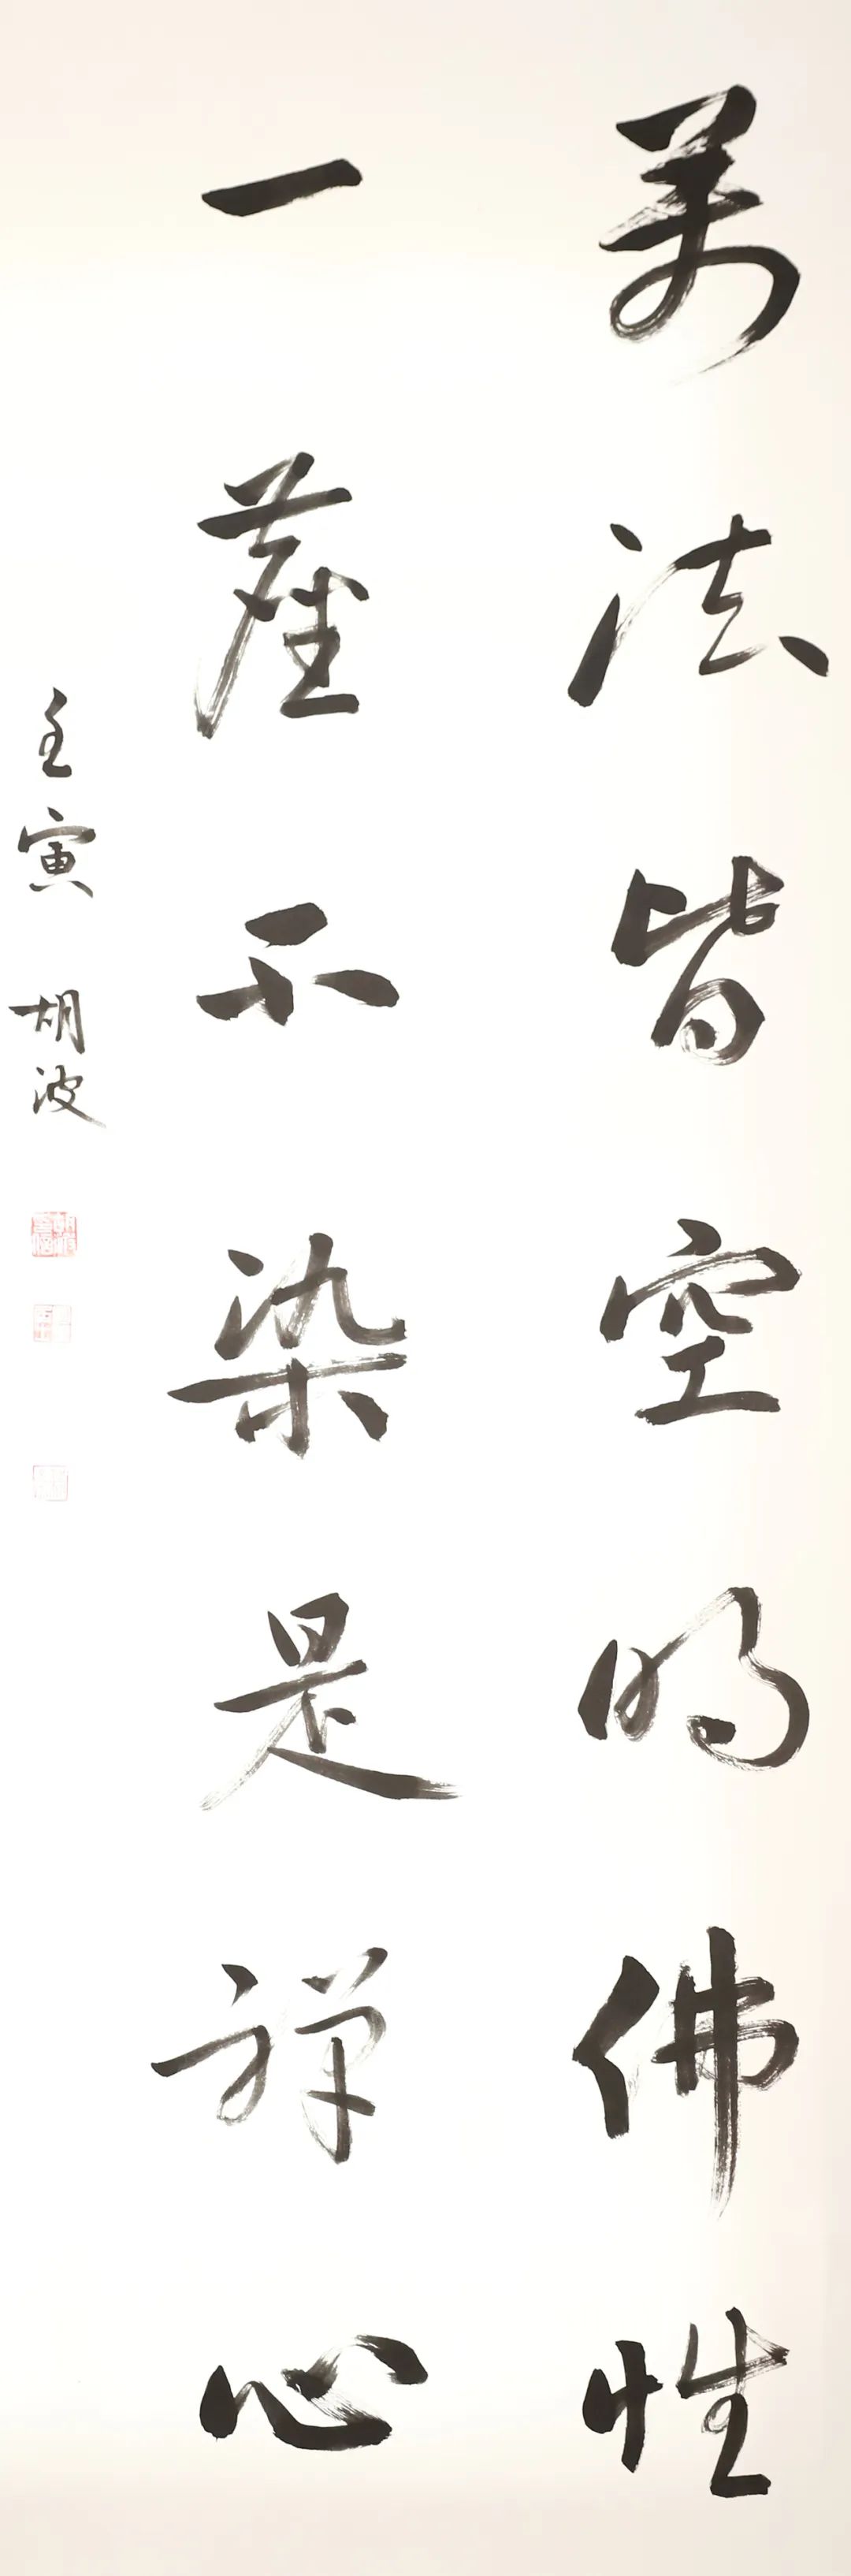 萬法皆空明佛性
一塵不染是禪心
壬寅 胡波